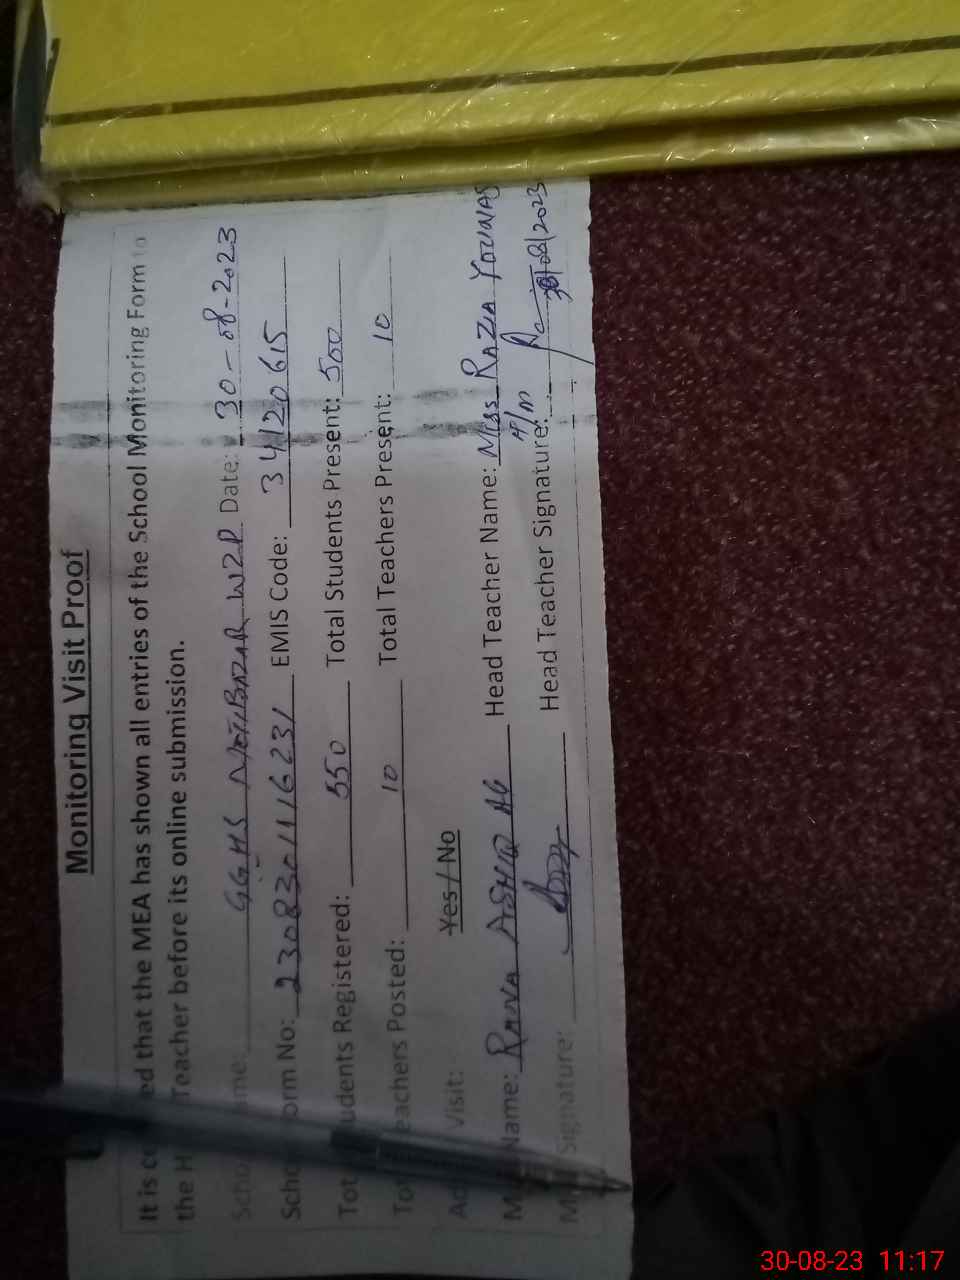 Monitoring Visit Proof
It is ed that the MEA has shown all entries of the School Monitoring Form to
the H Teacher before its online submission.
Scho me: GGHS BAZAR WZD Date: 30-08-2023
Scho orm No: 2308301116231 EMIS Code: 34120615
Tot udents Registered: 550 Total Students Present: 500
To eachers Posted: 10 Total Teachers Present: 10
Ad Visit: Yes / No
M Name: RANA ASHIQ AG Head Teacher Name: Miss RAZIA YOUNAS
M Signature: Head Teacher Signature: 30/08/2023
30-08-23 11:17